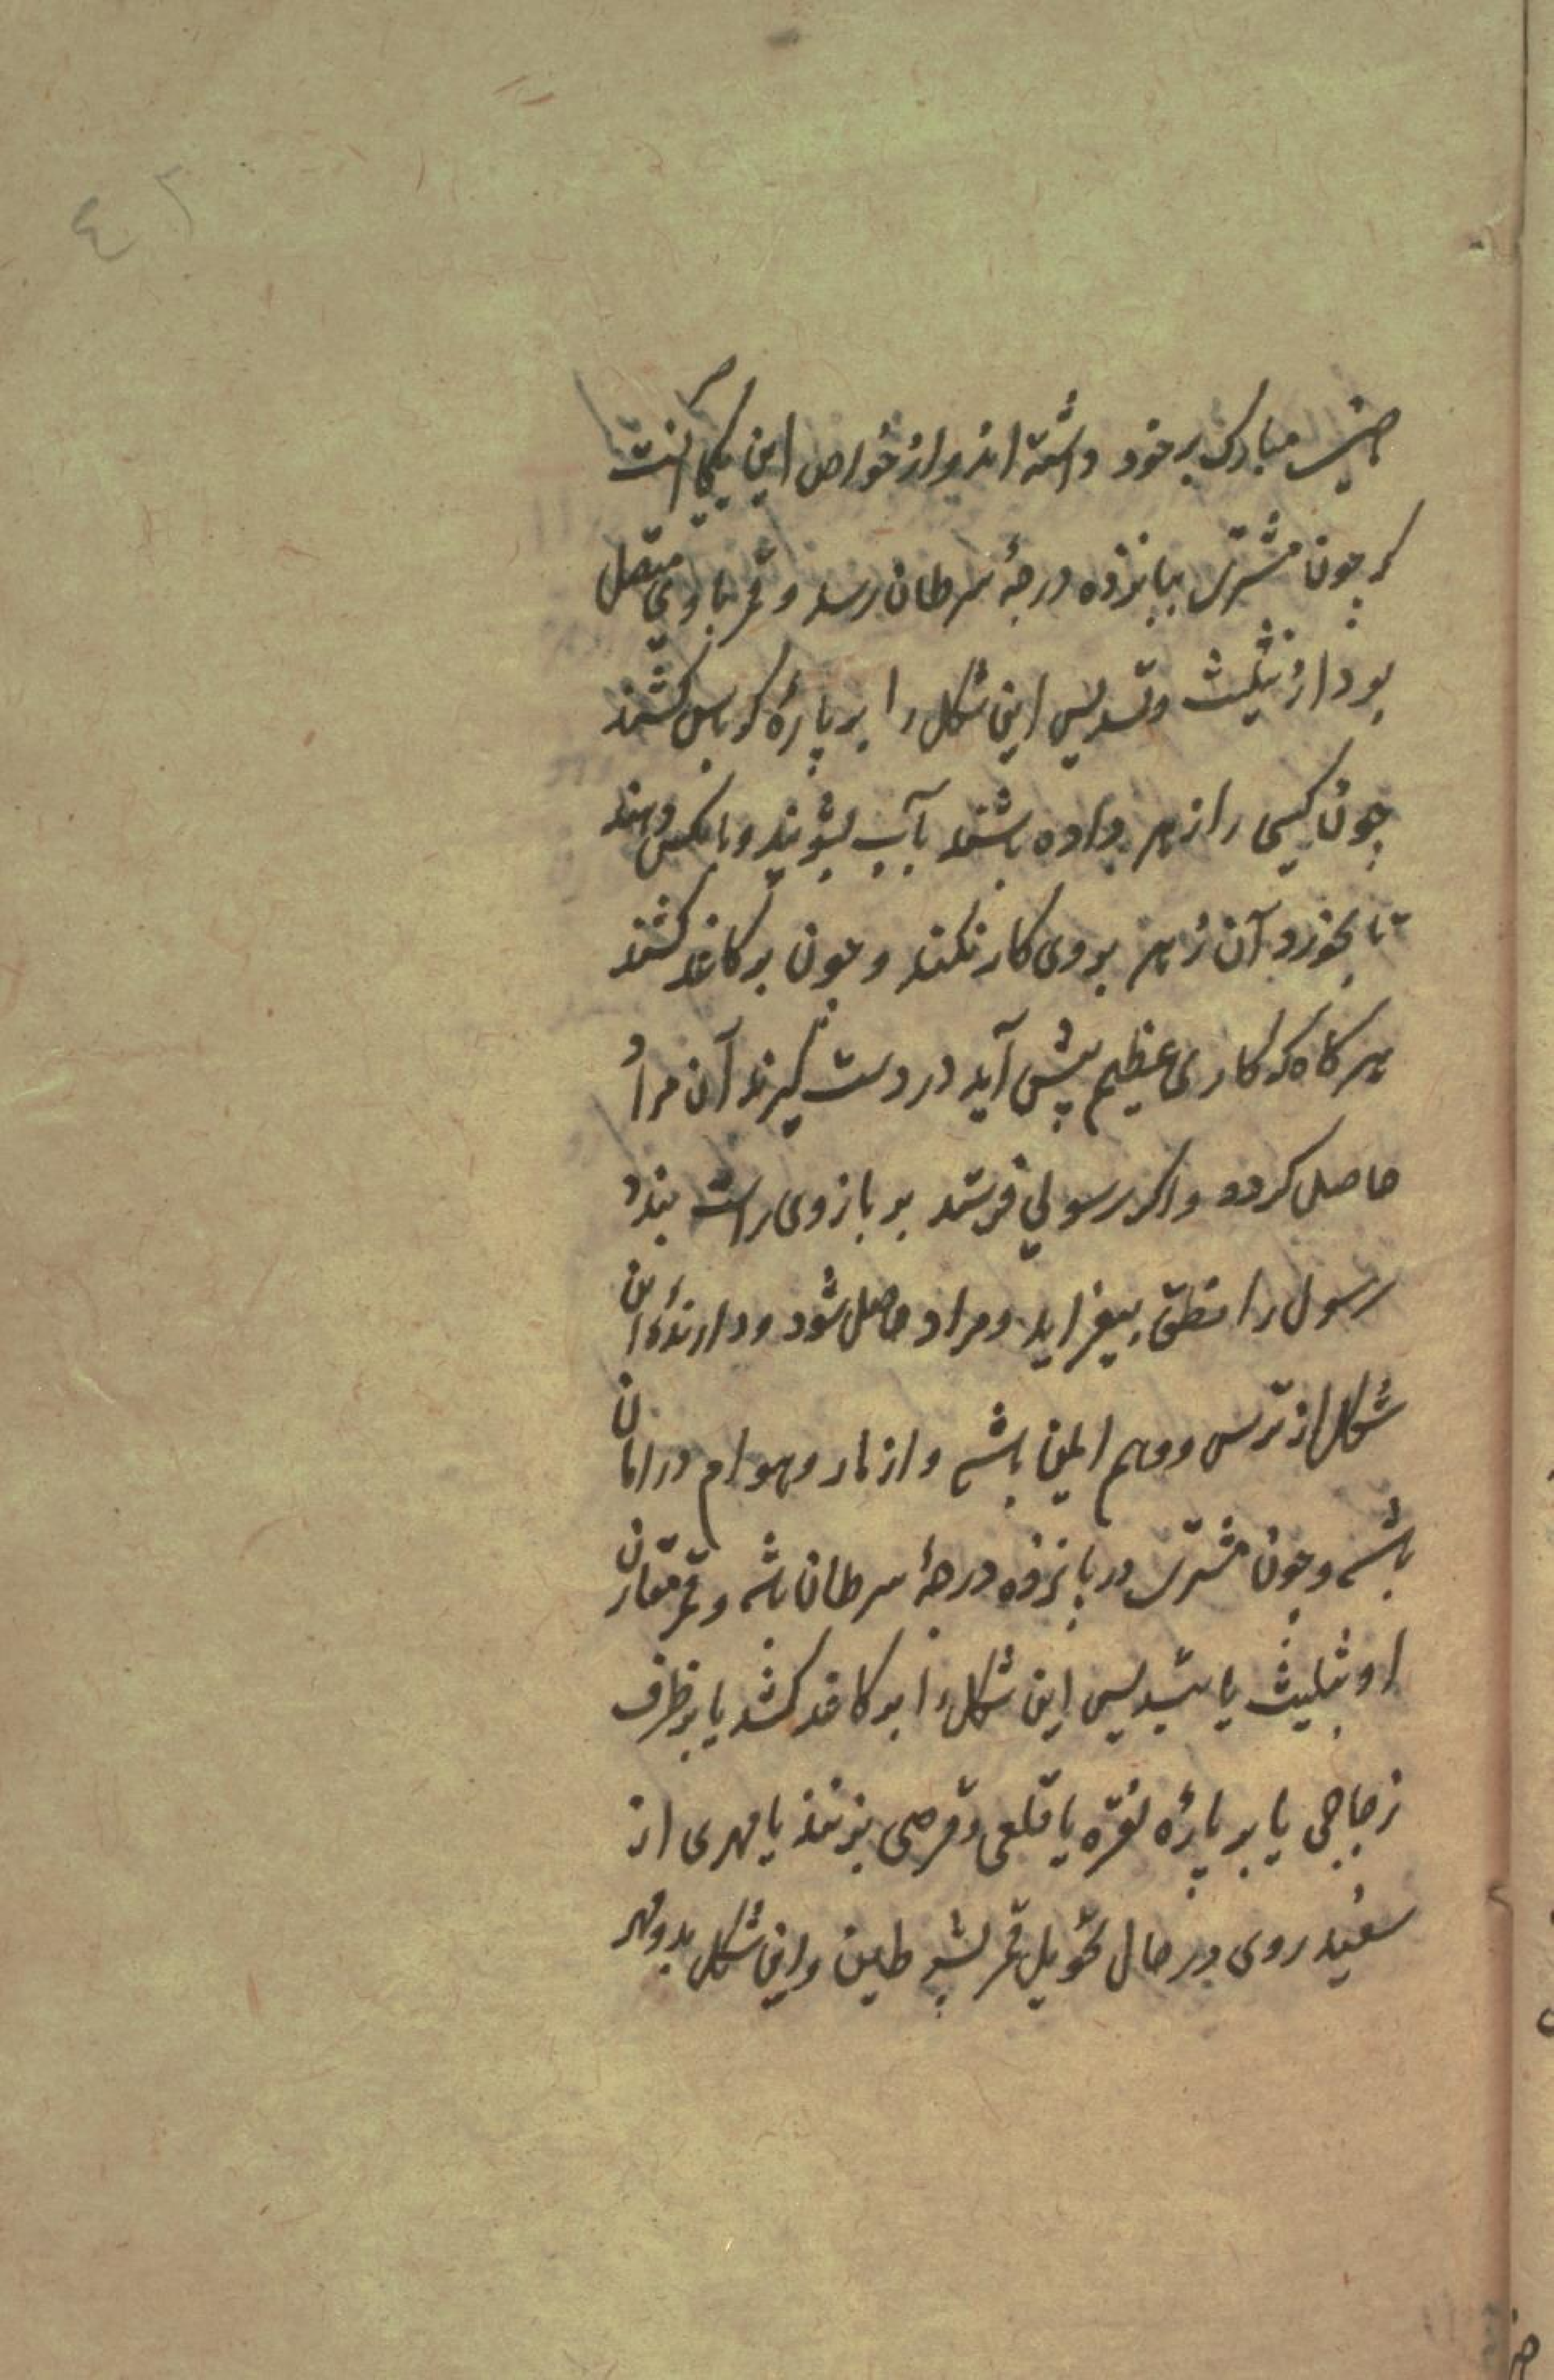 ٤٢
مبارک بر خود داشته اند و از خواص این یکی آنست
که چون مشتری ببانزده درجهٔ سرطان رسد و قمر با وی متصل
بود از تثلیث و تسدیس این شکل را بر پارهٔ کرباس کشند
چون کسی را زهر داده باشند بآب بشویند و بانکس دهند
تا بخورد آن زهر بر وی کار نکند و چون بر کاغذ کشند
هر کاه که کاری عظیم پیش آید در دست کیرند آن مراد
حاصل کردد و اکر رسولی فرستند بر بازوی راست بندد
رسول را منطق بیفزاید و مراد حاصل شود و دارندهٔ این
شکل از ترس و وهم ایمن باشد و از مار و هوام در امان
باشد و چون مشتری در پانزده درجهٔ سرطان باشد و قمر مقارن
او بتثلیث یا بتسدیس این شکل را بر کاغذ کشد یا بر ظرف
زجاجی یا بر پارهٔ نقره یا قلعی و قرصی بزنند یا مهری از
سفید روی در حال تحویل قمر بشرطین و این شکل بدو مهر